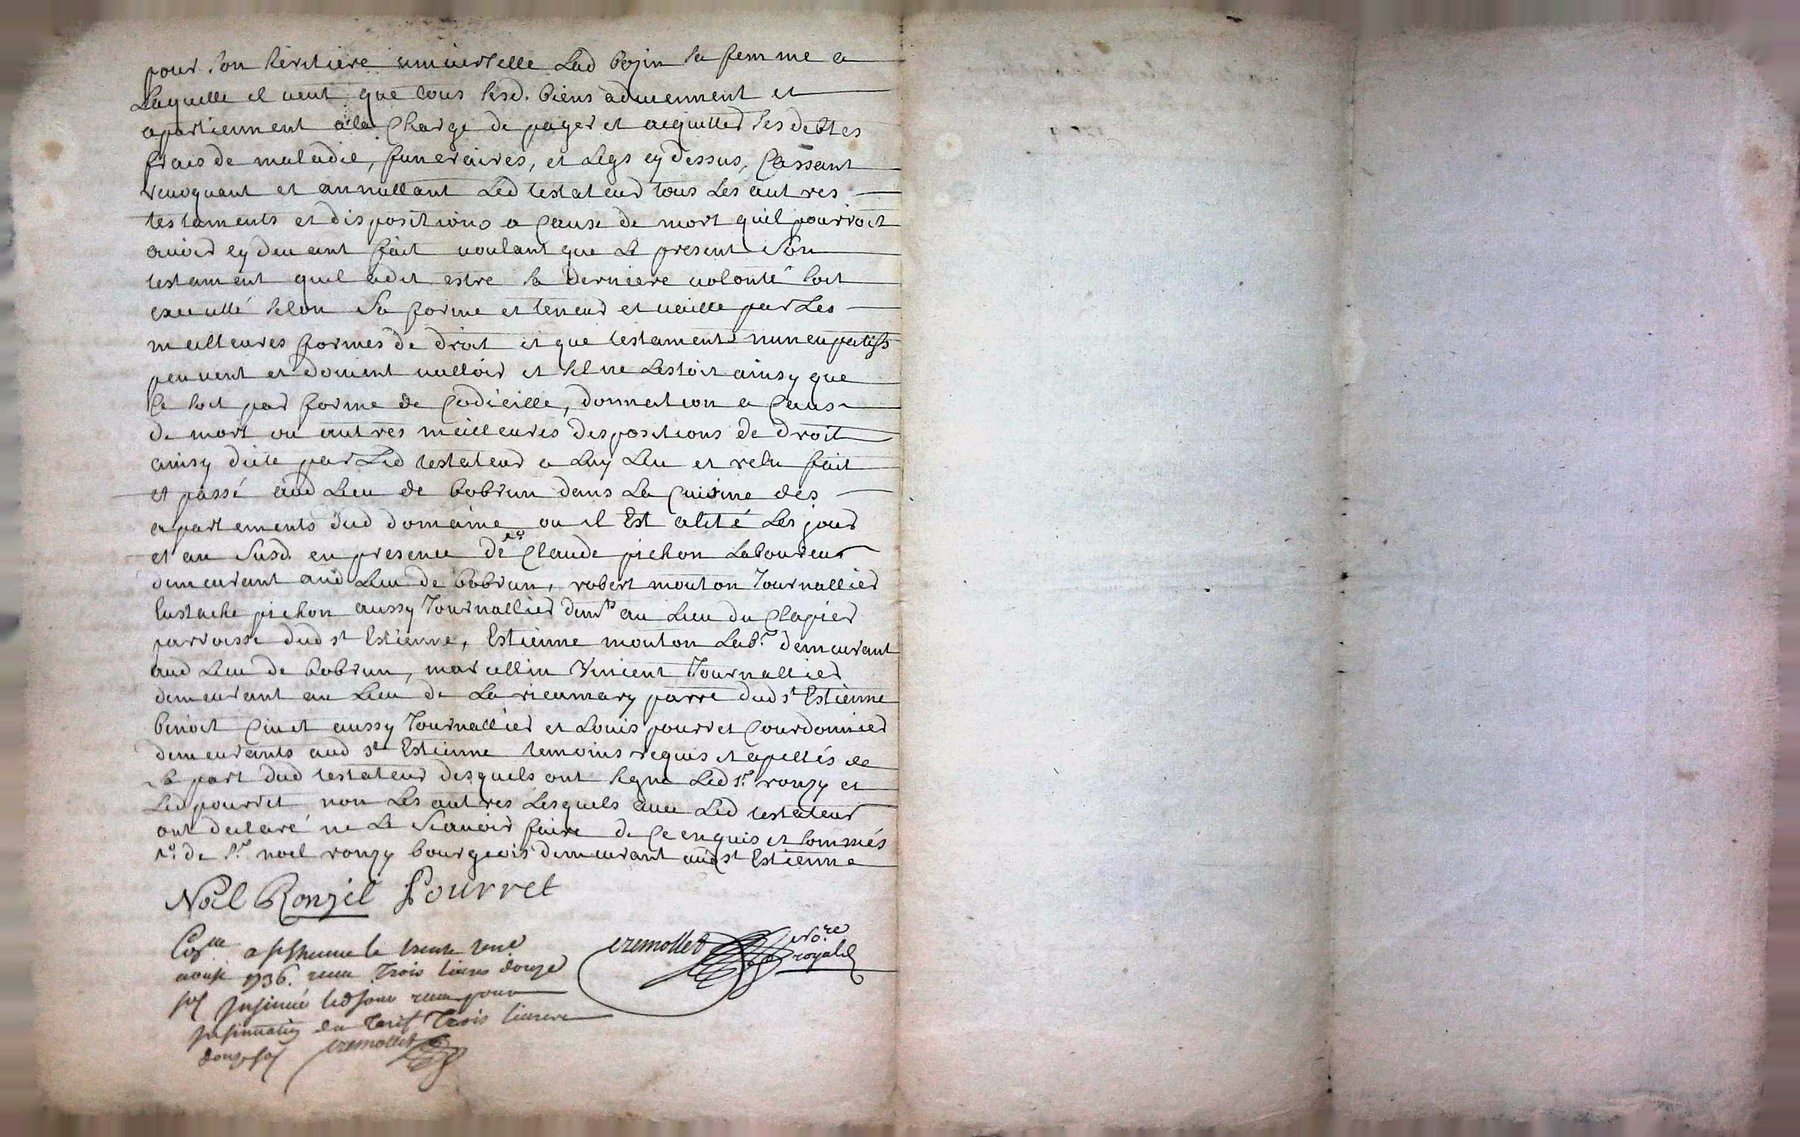 pour son heritiere universelle Lad bozin sa femme a
Laquelle il veut que tous sesd. biens adviennent et
apartiennent a la Charge de payer et acquitter ses debtes
frais de maladie, funeraires, et Legs cy dessus, Cassant
revoquant et annullant Led testateur tous Les autres
testaments et dispositions a Cause de mort quil pourroit
avoir cy devant fait voulant que Le present son
testament quil a dit estre sa derniere volonté soit
executté selon sa forme et teneur et vaille par Les
meilleures formes de droit et que testaments nuncupatifs
peuvent et doivent valloir et sil ne Lestoit ainsy que
Ce soit par forme de Codicille, donnation a Cause
de mort ou autres meilleures dispositions de droit
ainsy dicté par Led testateur a Luy Leu et relu fait
et passé aud Lieu de bobrun dans La Cuisine des
apartements dud domaine ou il Est alité Les jour
et an susd. en presence de Claude pichon Laboureur
demeurant aud Lieu de bobrun, robert mouton Journallier
Eustache pichon aussy Journallier demts au Lieu du Clapier
parroisse dud st Estienne, Estienne mouton Labr. demeurant
aud Lieu de bobrun, marcellin Vincent Journallier
demeurant au Lieu de La parre dud st Estienne
benoit aussy Journallier et Louis pourret Courdonnier
demeurants aud st Estienne temoins requis et apellés de
La part dud testateur desquels ont signé Led sr. ronzy et
Led pourret non Les autres Lesquels avec Led testateur
ont declaré ne Le Scavoir faire de Ce enquis et sommés
de Sr noel ronzy bourgeois demeurant aud st Estienne
Noël Ronzil Pourret
cremollet No.re
royal
a st Estienne le trente une
aoust 1736. receu Trois livres douze
sols Insinué led jour receu pour
Insinuation du tarif Trois livres
douze sols cremollet